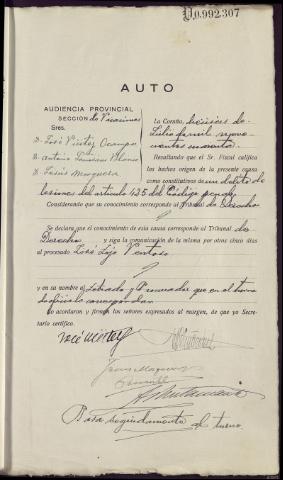 P.0.992,307
AUTO
AUDIENCIA PROVINCIAL
SECCION de Vacaciones
Sres.
D. José Vieitez Ocampo
D. Antonio
D. Jesús Marquera
La Coruña, dieciseis de
Julio de mil nove-
cientos
Resultando que el Sr. Fiscal califica
los hechos origen de la presente causa
como constitutivos de un delito de
lesiones del artículo 425 del Código penal
Considerando que su conocimiento corresponde al Tribunal de Derecho
Se declara que el conocimiento de esta causa corresponde al Tribunal de
Derecho y siga la comunicación de la misma por otros cinco días
al procesado José Lojo Ventoso
y en su nombre al Letrado y Procurador que en el turno
de oficio le correspondan
Lo acordaron y firman los señores expresados al margen, de que yo Secre-
tario certifico.
José Vieitez
Pasa seguidamente al turno.